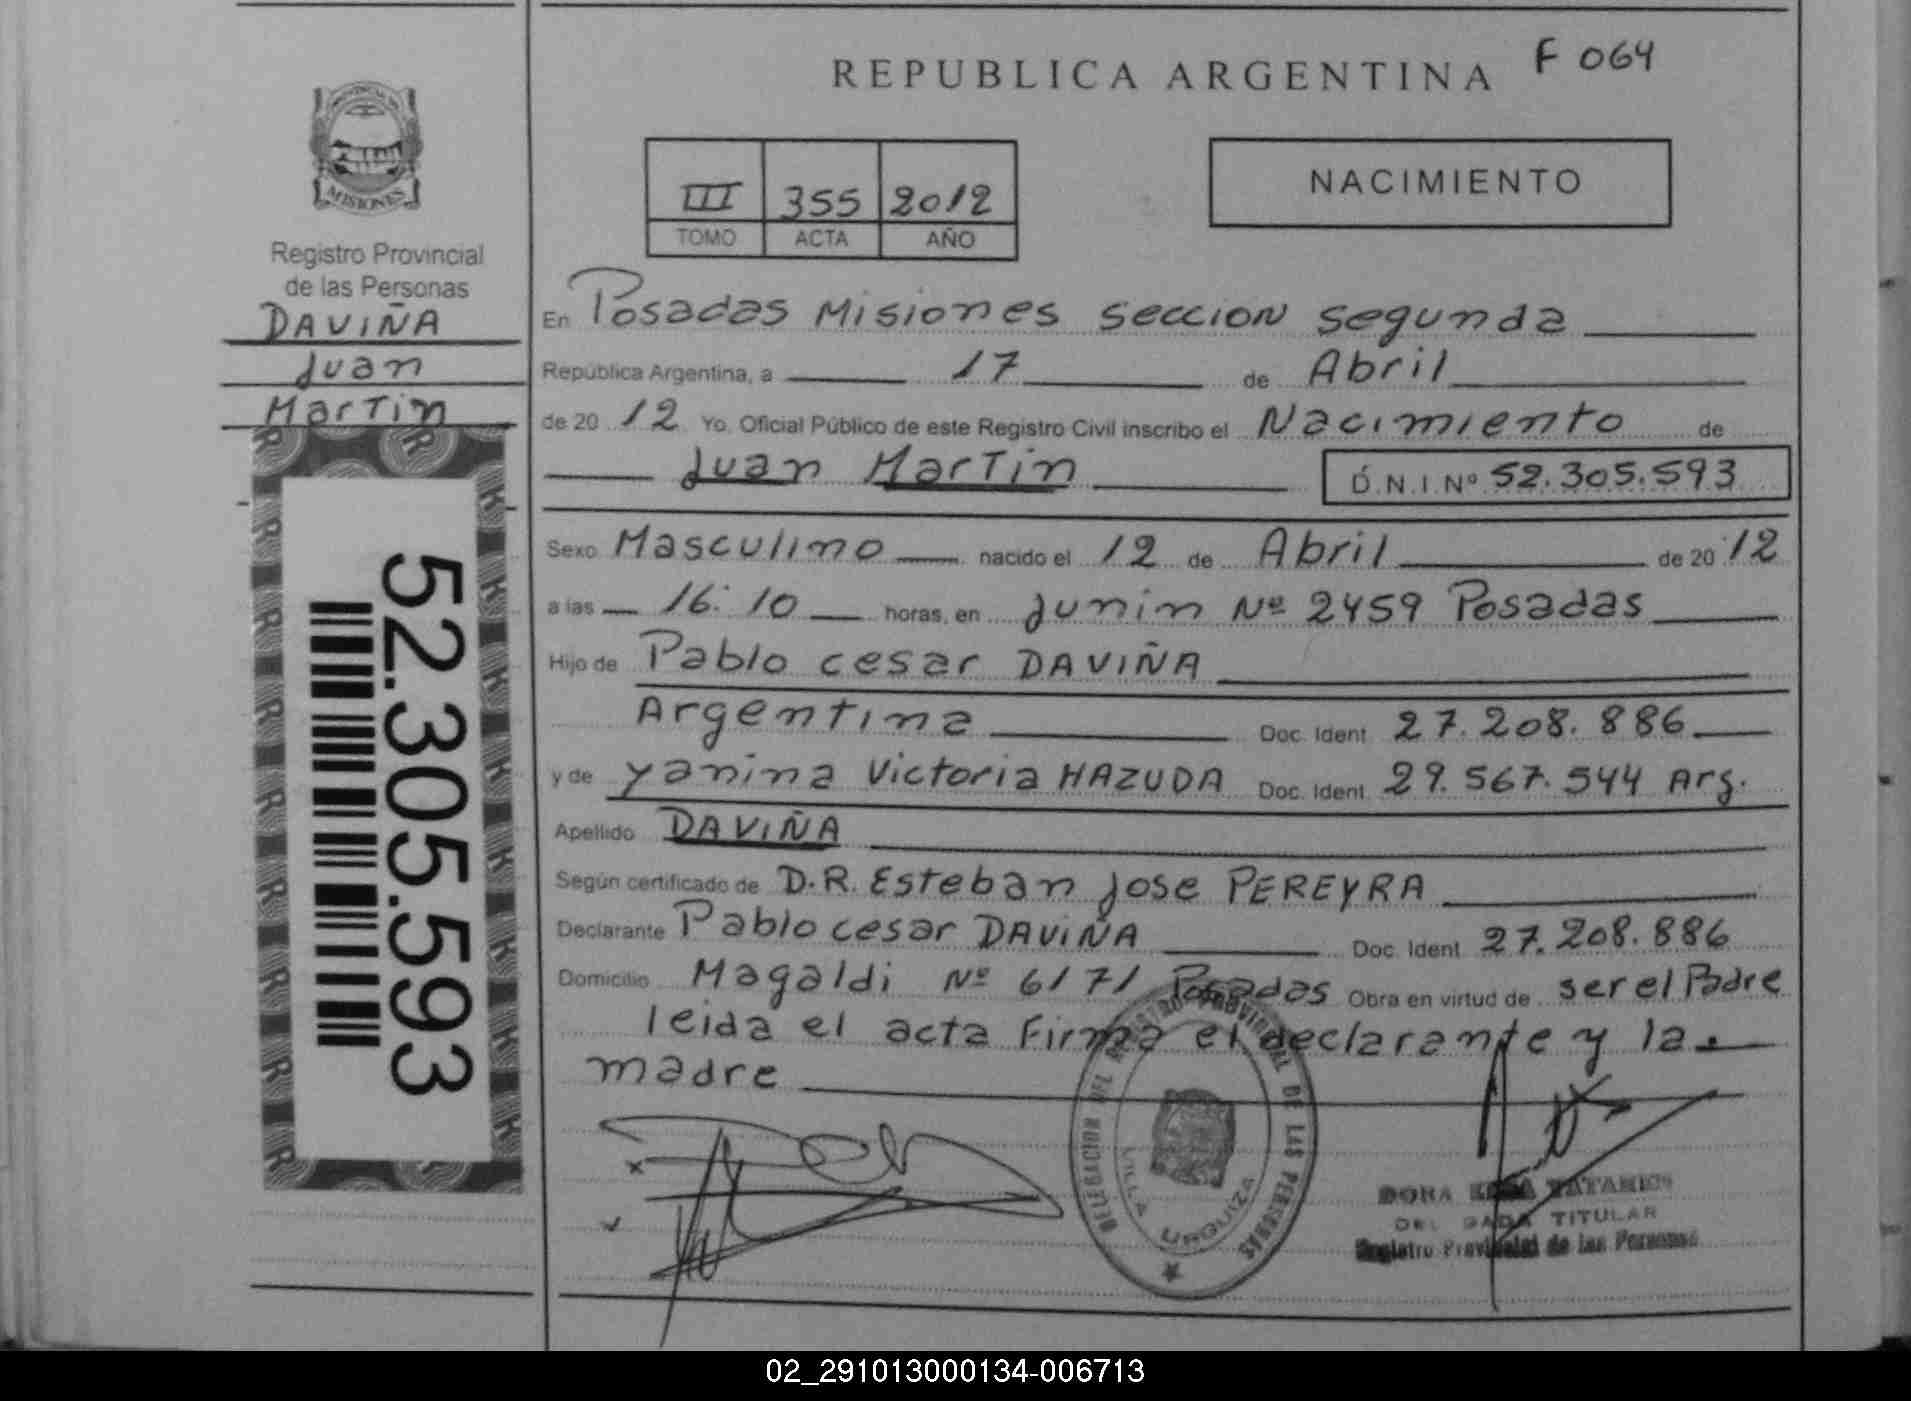 REPUBLICA ARGENTINA
F 064
MISIONES
Registro Provincial
de las Personas
DAVIÑA
Juan
Martin
52.305.593
III 355 2012
TOMO ACTA AÑO
NACIMIENTO
En Posadas Misiones seccion segunda
República Argentina, a 17 de Abril
de 20 12 Yo, Oficial Público de este Registro Civil inscribo el Nacimiento de
Juan Martin D.N.I.Nº 52.305.593
Sexo Masculino nacido el 12 de Abril de 20 12
a las 16:10 horas, en Junin Nº 2459 Posadas
Hijo de Pablo cesar DAVIÑA
Argentina Doc. Ident. 27.208.886
y de Yanina Victoria HAZUDA Doc. Ident. 29.567.544 Arg.
Apellido DAVIÑA
Según certificado de D.R. Esteban Jose PEREYRA
Declarante Pablo cesar DAVIÑA Doc. Ident. 27.208.886
Domicilio Magaldi Nº 6171 Posadas Obra en virtud de ser el Padre
leida el acta Firma el declarante y la
madre
DELEGACION DEL REGISTRO PROVINCIAL DE LAS PERSONAS
VILLA URQUIZA
DORA
TITULAR
Registro Provincial de las Personas
02_291013000134-006713